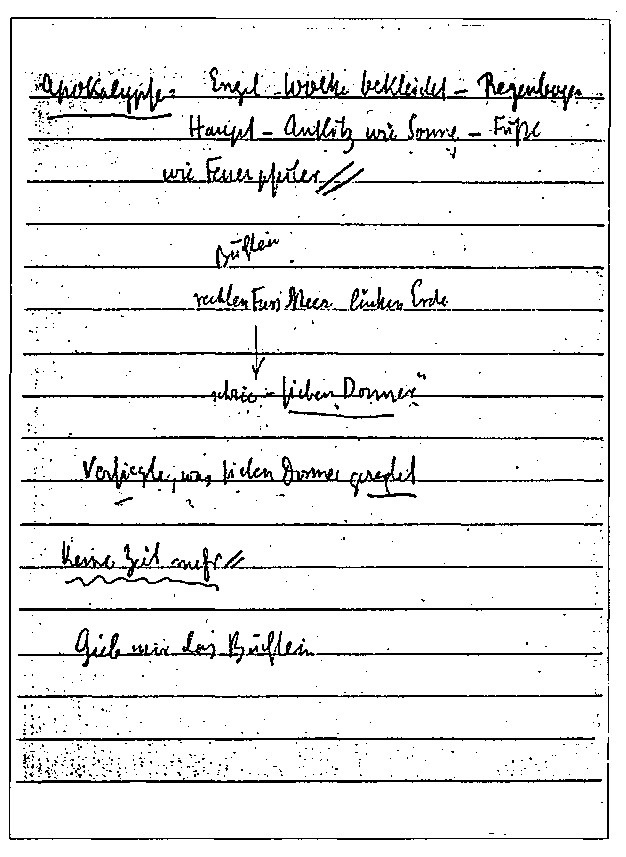 Apokalypse: Engel Wolke bekleidet – Regenbogen
Haupt – Antlitz wie Sonne – Füße
wie Feuerpfeiler
Büchlein
rechten Fuß Meer linken Erde
schrie – sieben Donner"
Versiegle, was sieben Donner geredet
Keine Zeit mehr
Gieb mir das Büchlein